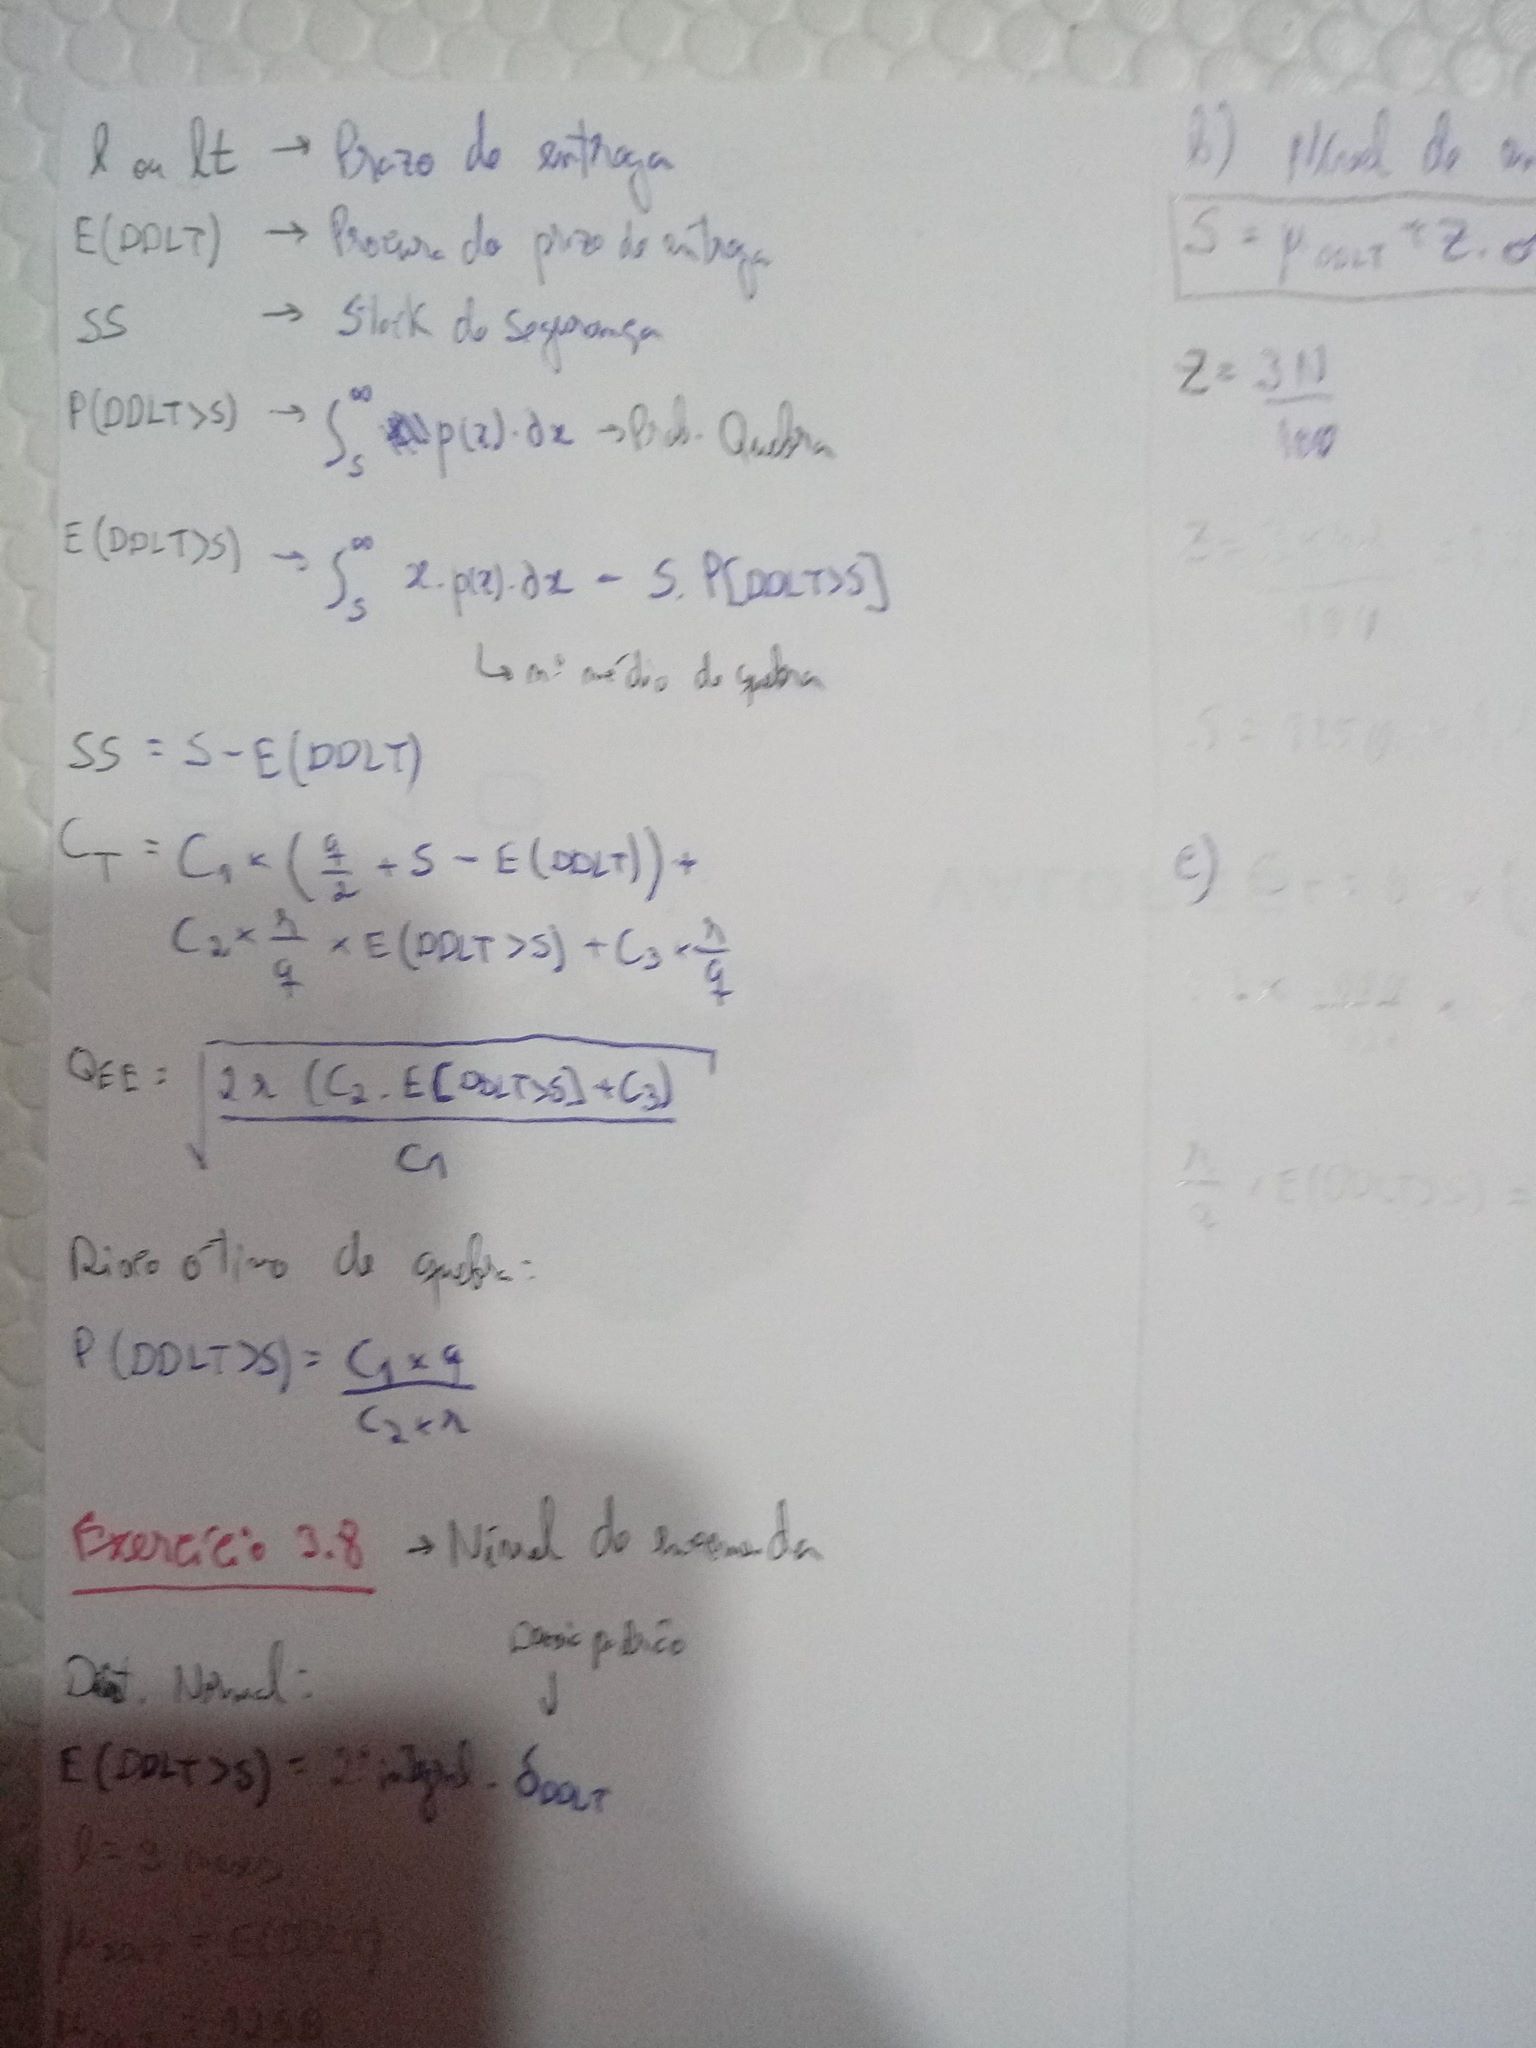 l ou lt → Prazo de entrega
E(DDLT) → Procura do prazo de entrega
SS → Stock de Segurança
P(DDLT>S) → ∫_S^∞ p(x)·dx → Prob. Quebra
E(DDLT>S) → ∫_S^∞ x·p(x)·dx - S. P[DDLT>S]
↳ nº médio de quebra
SS = S - E(DDLT)
C_T = C_1 × (q/2 + S - E(DDLT)) +
C_2 × r/q × E(DDLT>S) + C_3 × r/q
Q_EE = √(2r (C_2 . E[DDLT>S] + C_3) / C_1)
Risco ótimo de quebra:
P(DDLT>S) = C_1 × q / C_2 × r
Exercício 3.8 → Nível de encomenda
Desvio padrão
↓
Dist. Normal:
E(DDLT>S) = 2º integral . δ_DDLT
l = 3 meses
= E(DDLT)
b) Nível de
S = μ_DDLT + Z.σ
Z =
Z =
S =
c)
r/q . E(DDLT>S) =